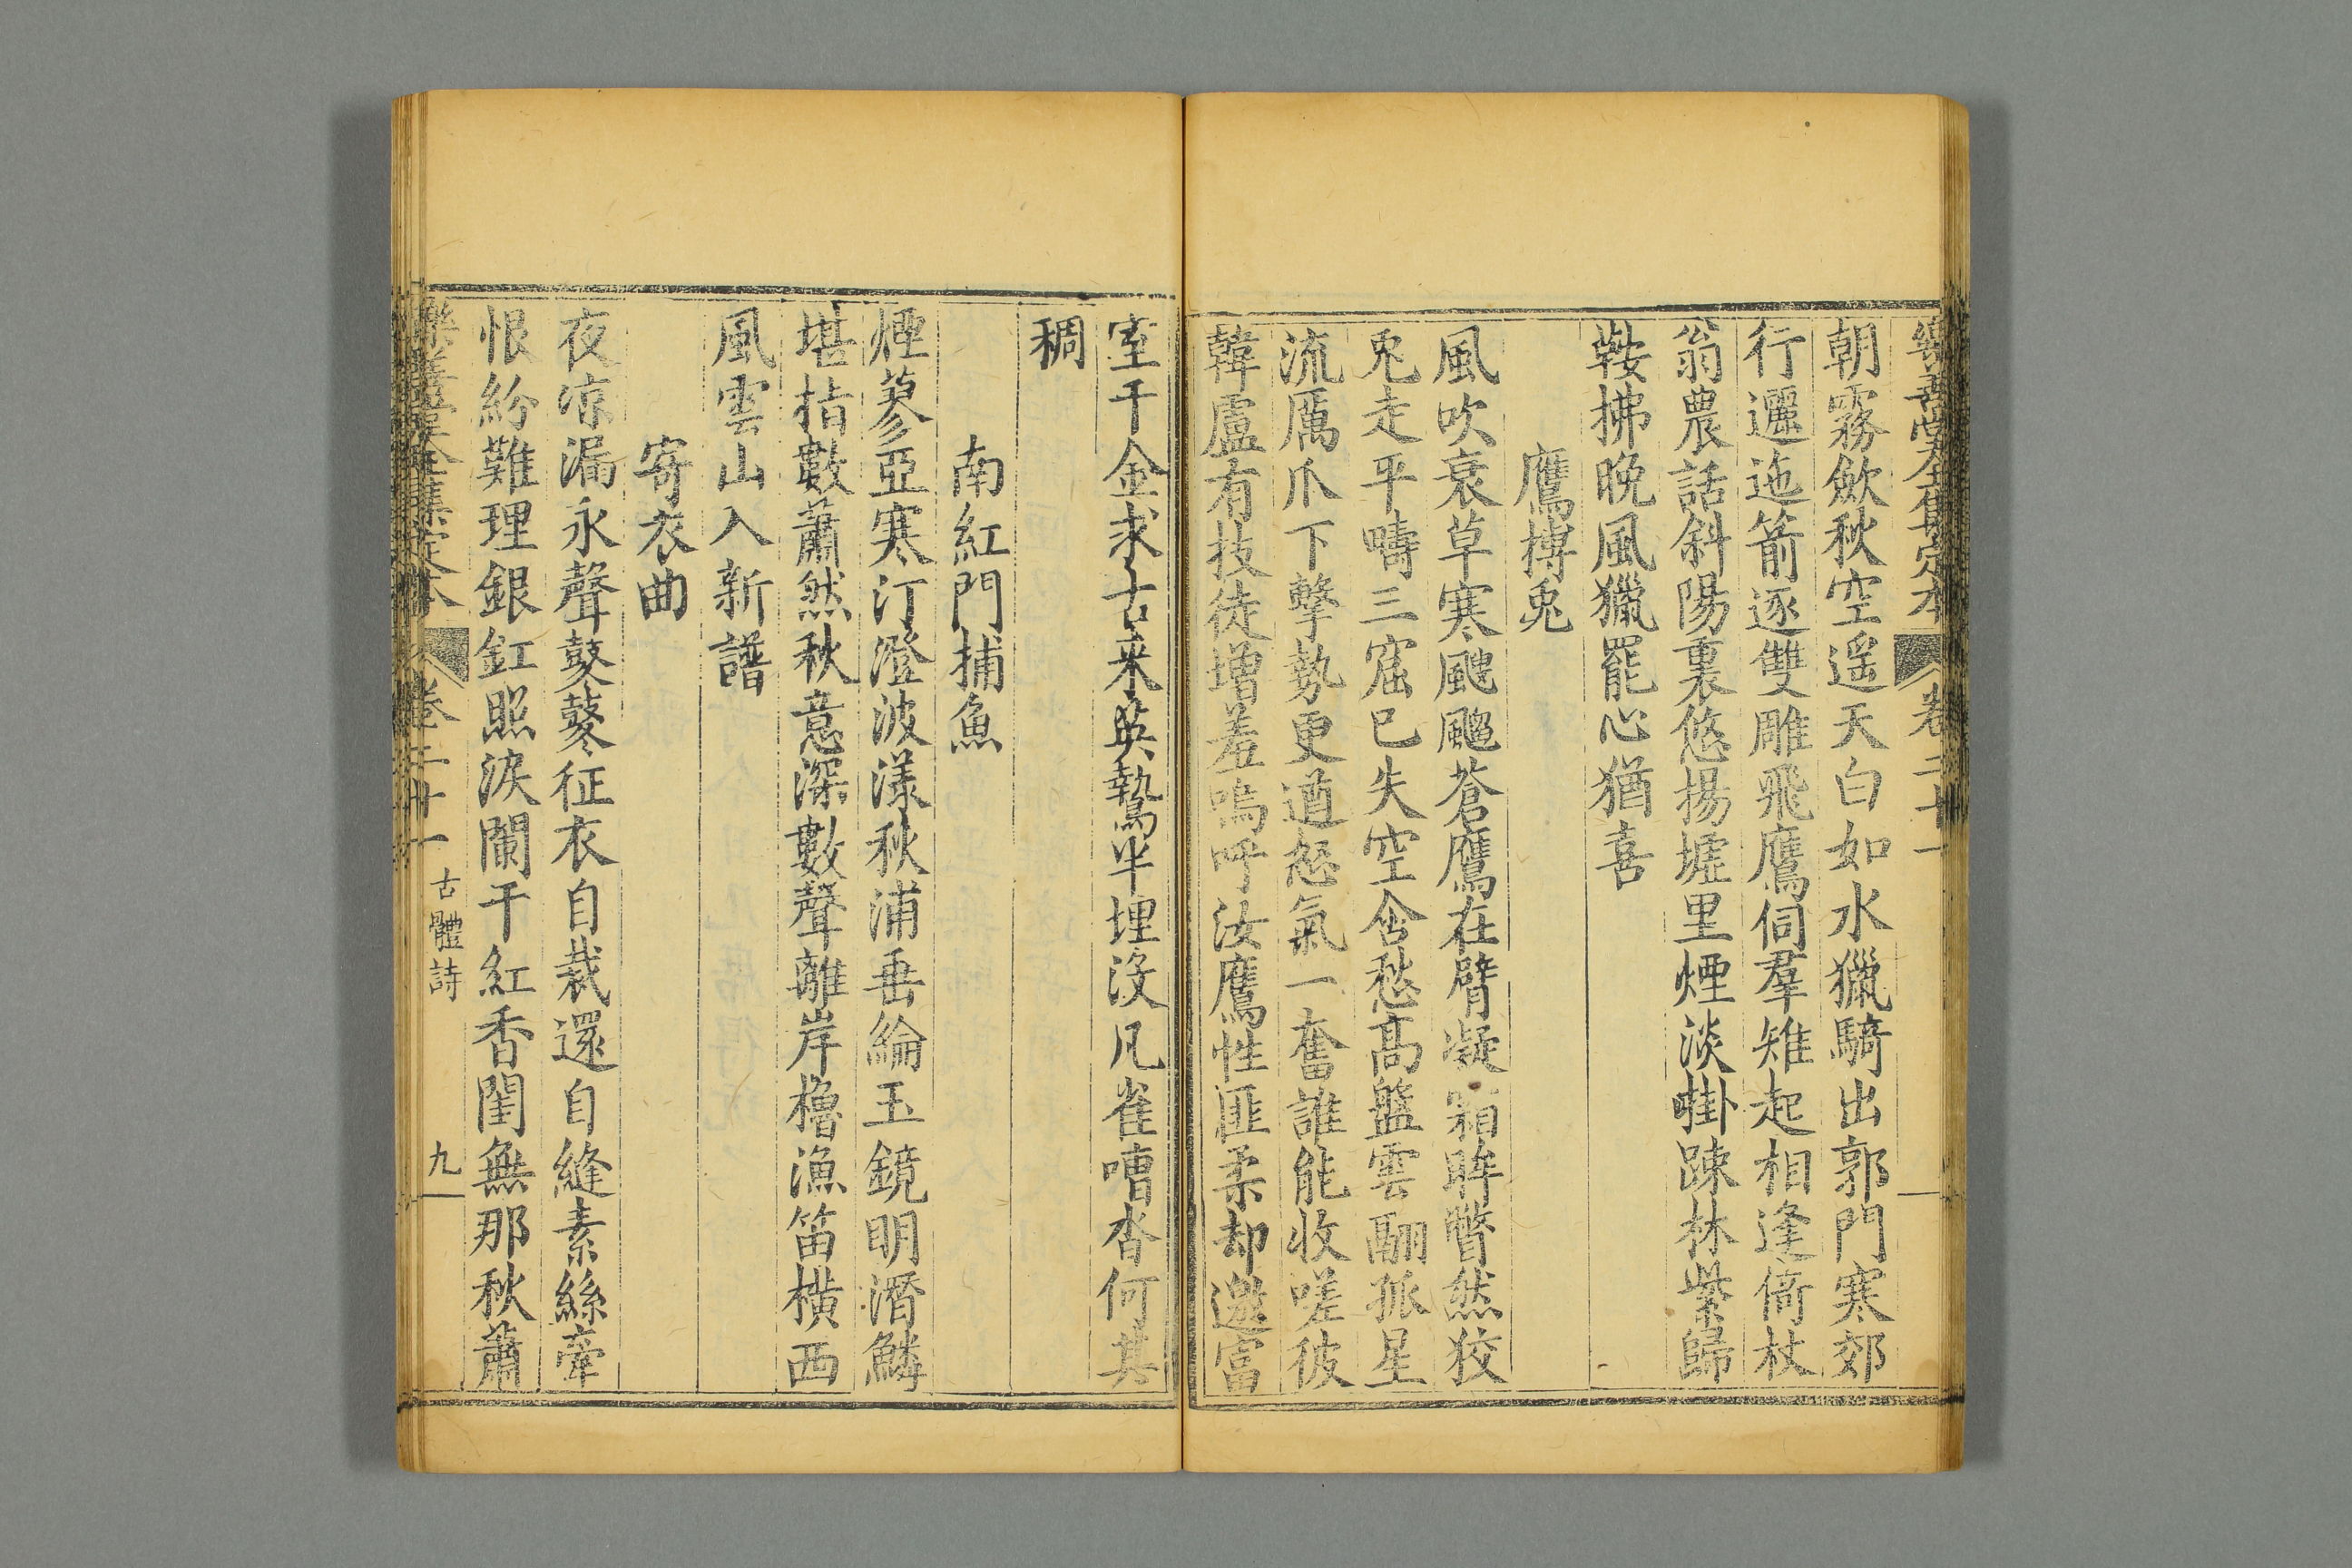 樂善堂全集定本 卷二十一
朝霧歛秋空遥天白如水獵騎出郭門寒郊
行邐迤箭逐雙雕飛鷹伺羣雉起相逢倚杖
翁農話斜陽裏悠揚墟里煙淡掛踈林紫歸
鞍拂晚風獵罷心猶喜
鷹搏兎
風吹衰草寒颸颸蒼鷹在臂凝霜眸瞥然狡
兎走平疇三窟已失空含愁髙盤雲翮孤星
流厲爪下擊勢更遒怒氣一奮誰能收嗟彼
韓盧有技徒增羞嗚呼汝鷹性匪柔却邀富
室千金求古来英鷙半埋沒凡雀嘈杳何其
稠
南紅門捕魚
煙蓼亞寒汀澄波漾秋浦垂綸玉鏡明潛鱗
堪指數蕭然秋意深數聲離岸櫓漁笛橫西
風雲山入新譜
寄衣曲
夜凉漏永聲鼕鼕征衣自裁還自縫素絲牽
恨紛難理銀釭照淚闌干紅香閨無那秋蕭
樂善堂全集定本 卷二十一 古體詩 九